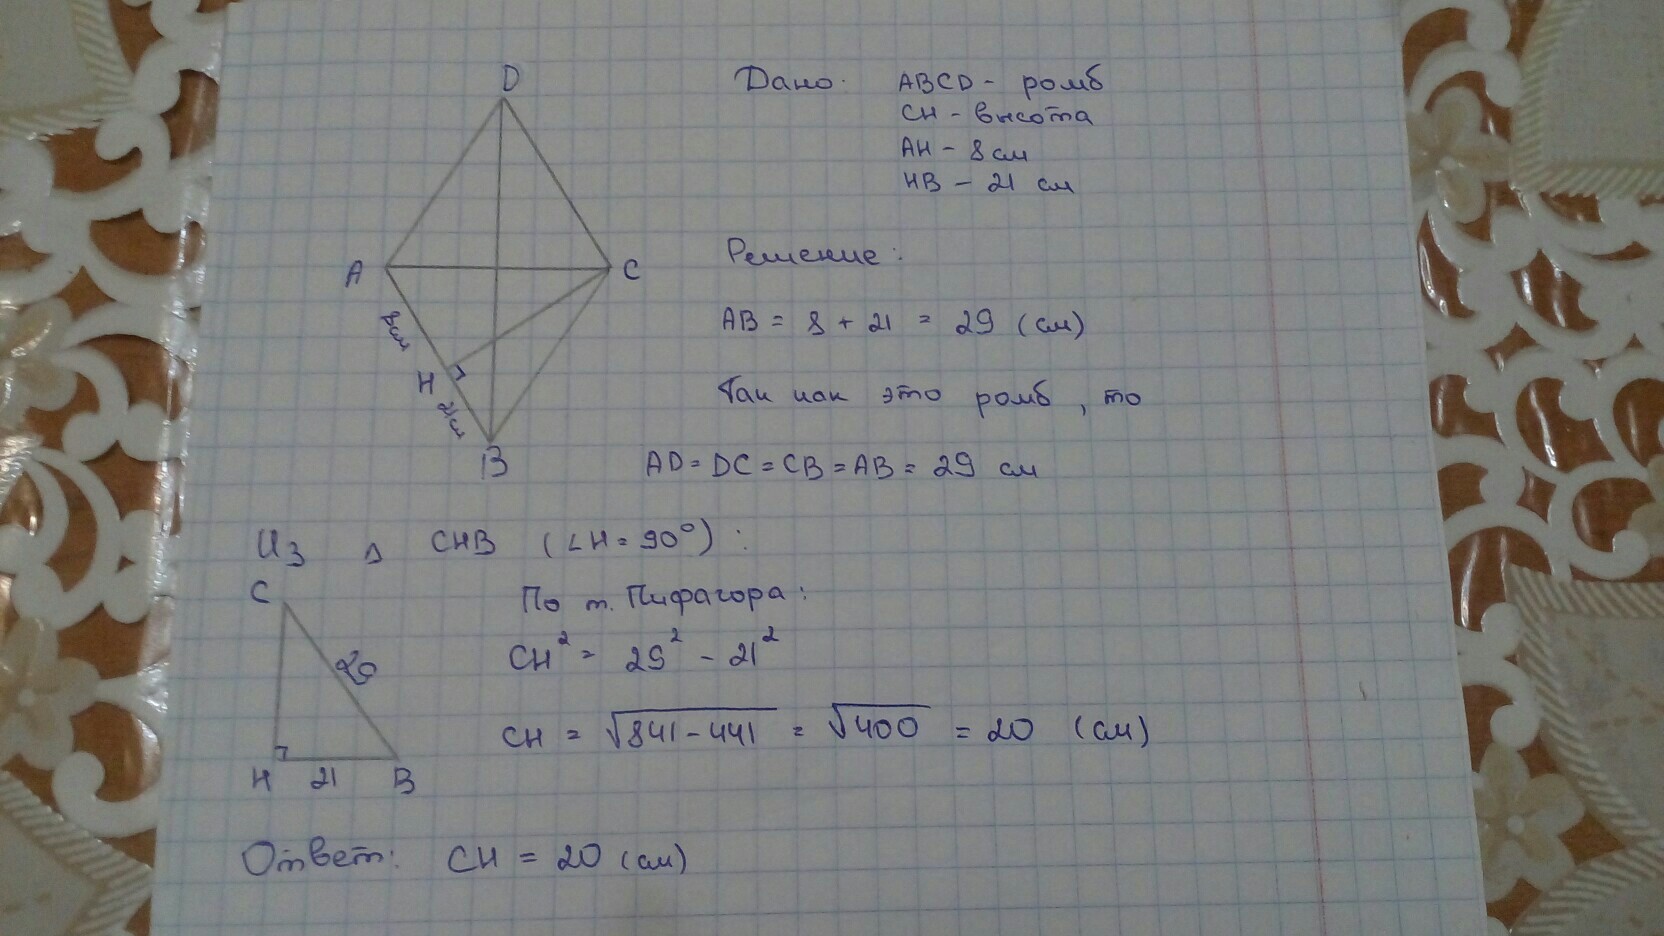 D
Дано: ABCD - ромб
CH - высота
AH - 8 см
HB - 21 см
A
C
8 см
H
21 см
B
Решение:
AB = 8 + 21 = 29 (см)
Так как это ромб, то
AD = DC = CB = AB = 29 см
Из Δ CHB (∠H = 90°):
C
29
H
21
B
По т. Пифагора:
CH² = 29² - 21²
CH = √841 - 441 = √400 = 20 (см)
Ответ: CH = 20 (см)